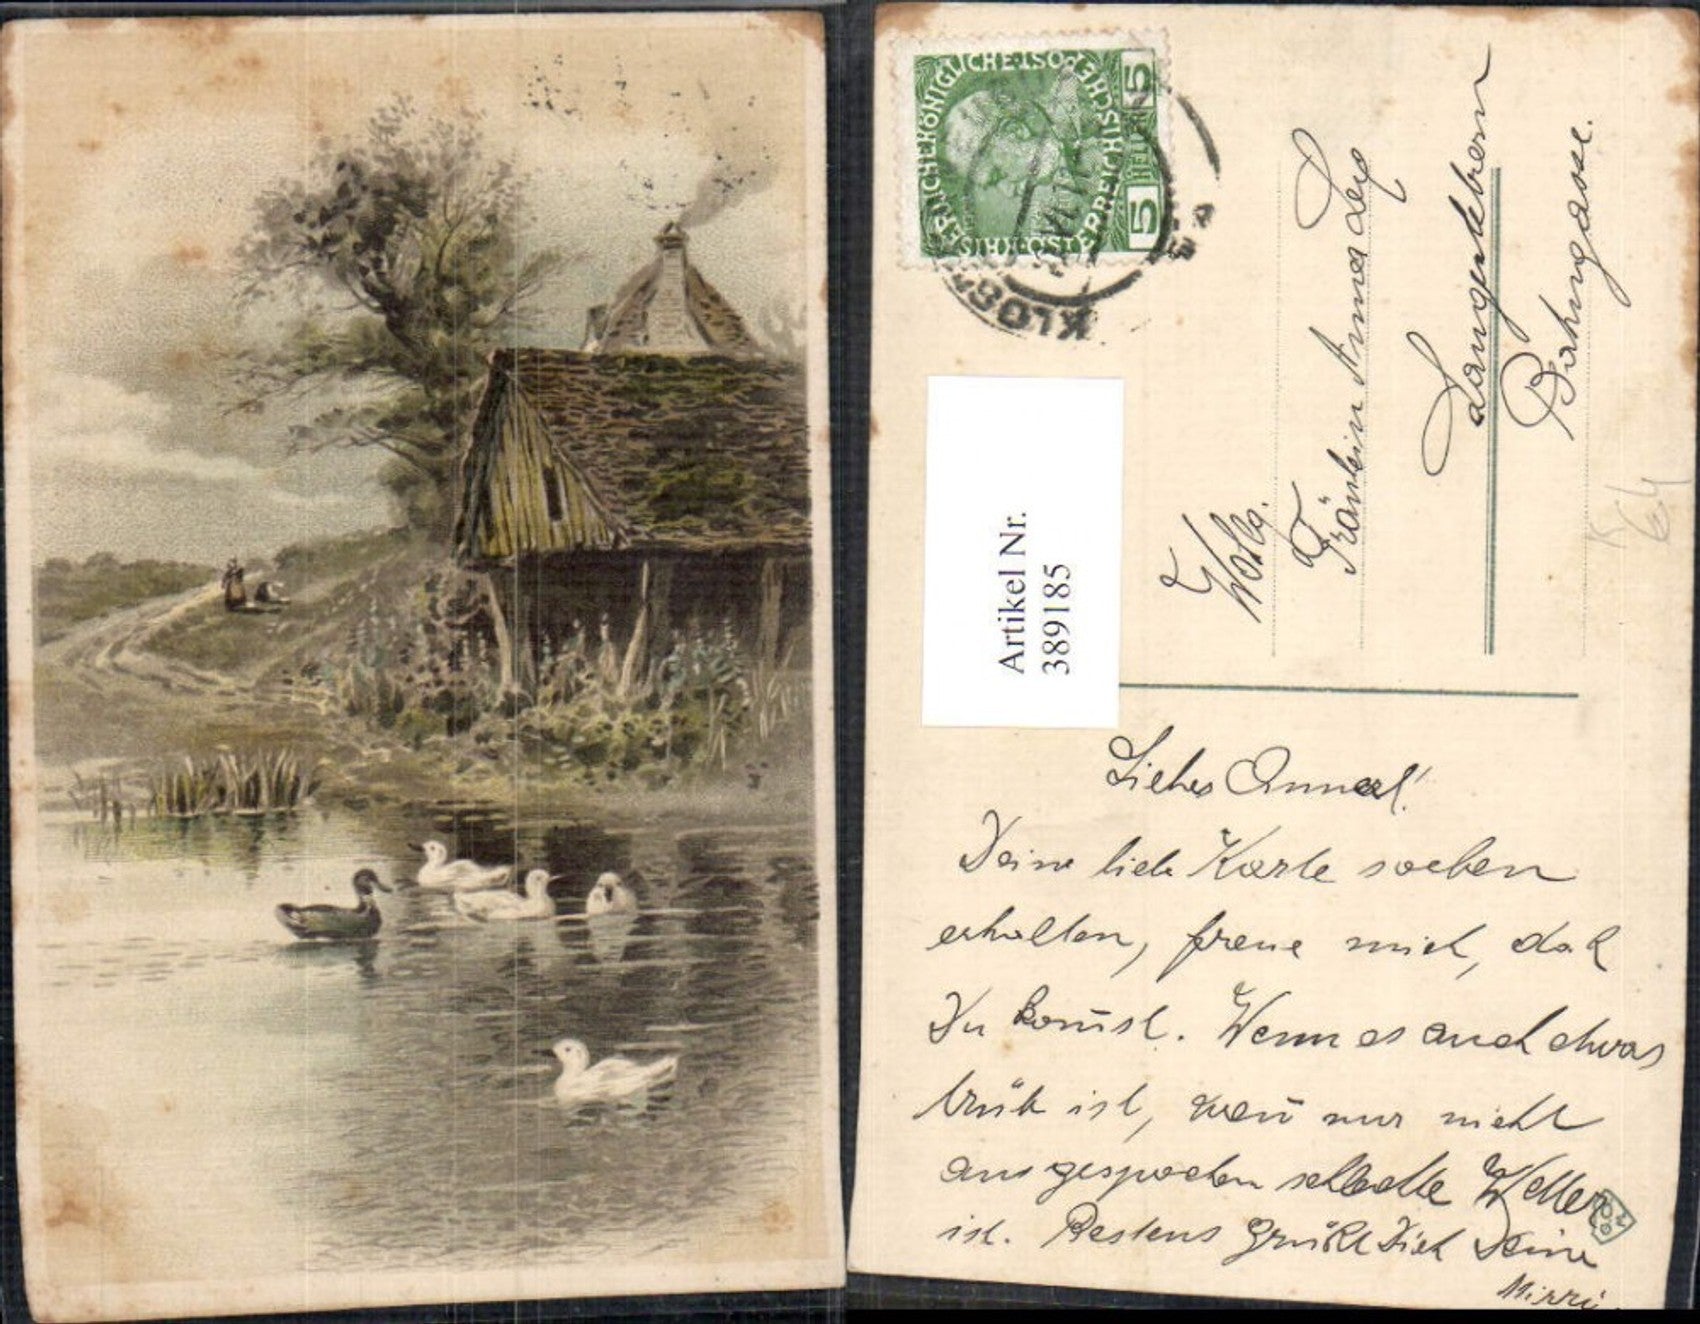 KAISERLICHE KÖNIGLICHE ÖSTERREICHISCHE POST
5 HELLER 5
KLOST
VI
Wohlg.
Fräulein Anna
Langenlebern
Bahngasse.
Artikel Nr.
3889185
Liebes Annerl!
Deine liebe Karte soeben
erhalten, freue mich, daß
Du kom̄st. Wenn es auch etwas
trüb ist, wen̄ nur nicht
ausgesprochen schlechtes Wetter
ist. Bestens Grüßt Dich Deine
Mizzi.